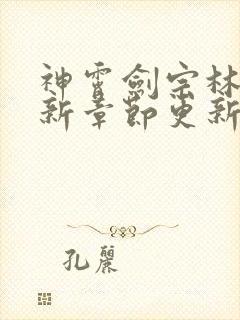 神霄劍宗林
新章節更新
孔麗